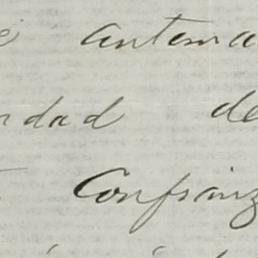 antema
dad de
Confianz